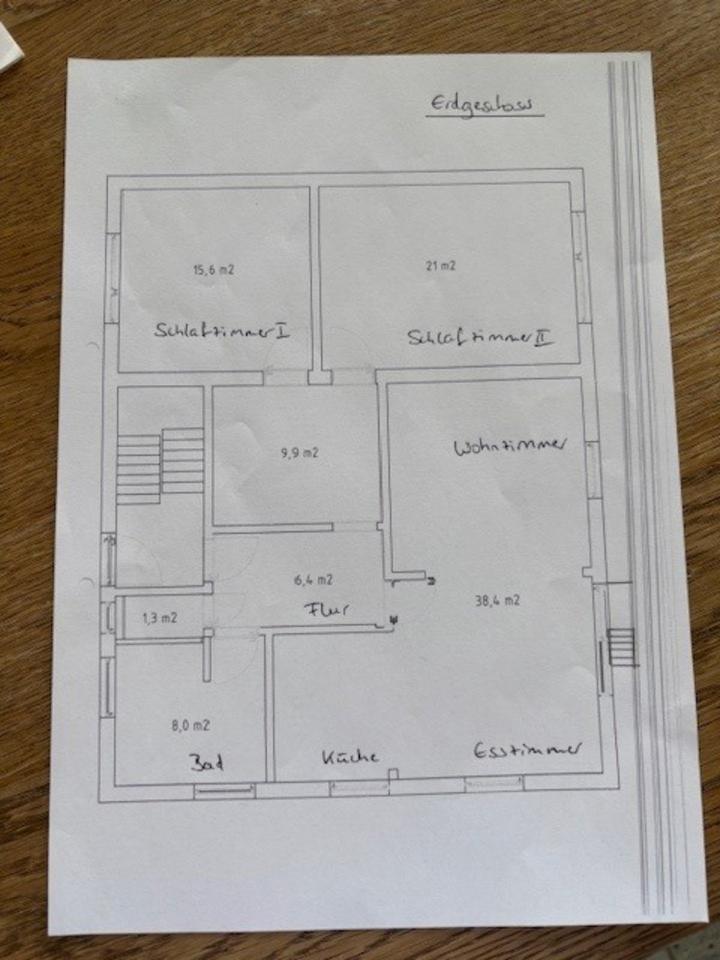 Erdgeschoss
15,6 m2
21 m2
Schlafzimmer I
Schlafzimmer II
9,9 m2
Wohnzimmer
6,4 m2
Flur
38,4 m2
1,3 m2
8,0 m2
Bad
Küche
Esszimmer